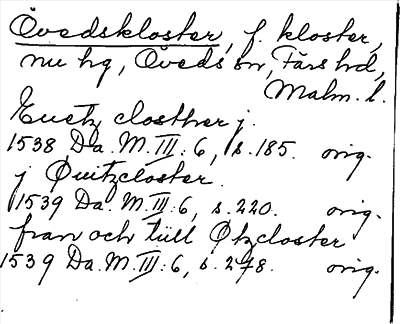 Övedskloster, f. kloster,
nu hg, Öveds sn, Färs hd,
Malm. l.
Euetz closther j.
1538 Da. M. III: 6, s. 185. orig.
j Øuitzcloster.
1539 Da. M. III: 6, s. 220. orig.
fran och till Øtzcloster
1539 Da. M. III: 6, s. 278. orig.